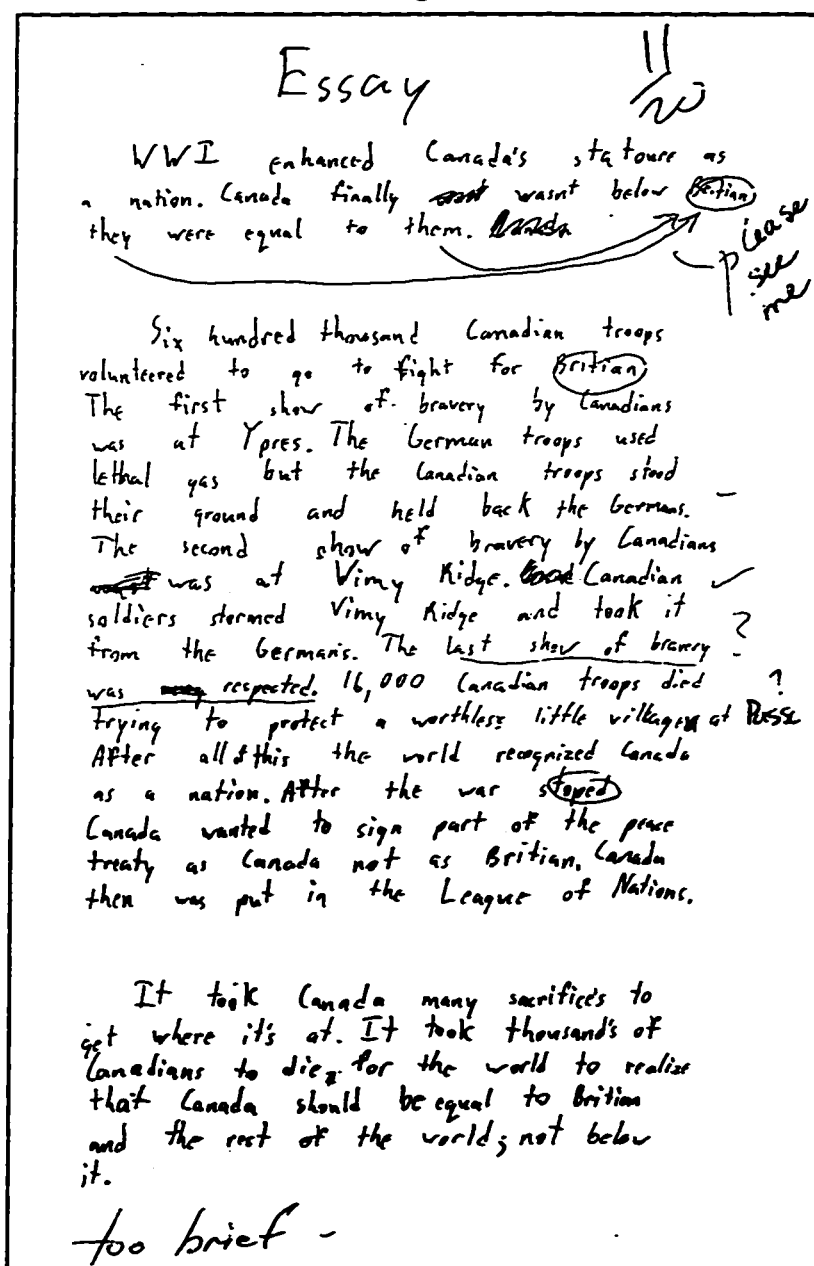 Essay
11/20
WWI enhanced Canada's statoure as
a nation. Canada finally wasnt below Britian,
they were equal to them.
please
see
me
Six hundred thousand Canadian troops
volunteered to go to fight for Britian,
The first show of bravery by Canadians
was at Ypres. The German troops used
lethal gas but the Canadian troops stood
their ground and held back the Germans.
The second show of bravery by Canadians
was at Vimy Ridge. Canadian ✓
soldiers stormed Vimy Ridge and took it
from the Germans. The last show of bravery ?
was respected. 16,000 Canadian troops died ?
trying to protect a worthless little village at
After all of this the world recognized Canada
as a nation. After the war stoped
Canada wanted to sign part of the peace
treaty as Canada not as Britian. Canada
then was put in the League of Nations.
It took Canada many sacrifice's to
get where it's at. It took thousand's of
Canadians to die, for the world to realize
that Canada should be equal to Britian
and the rest of the world; not below
it.
too brief -